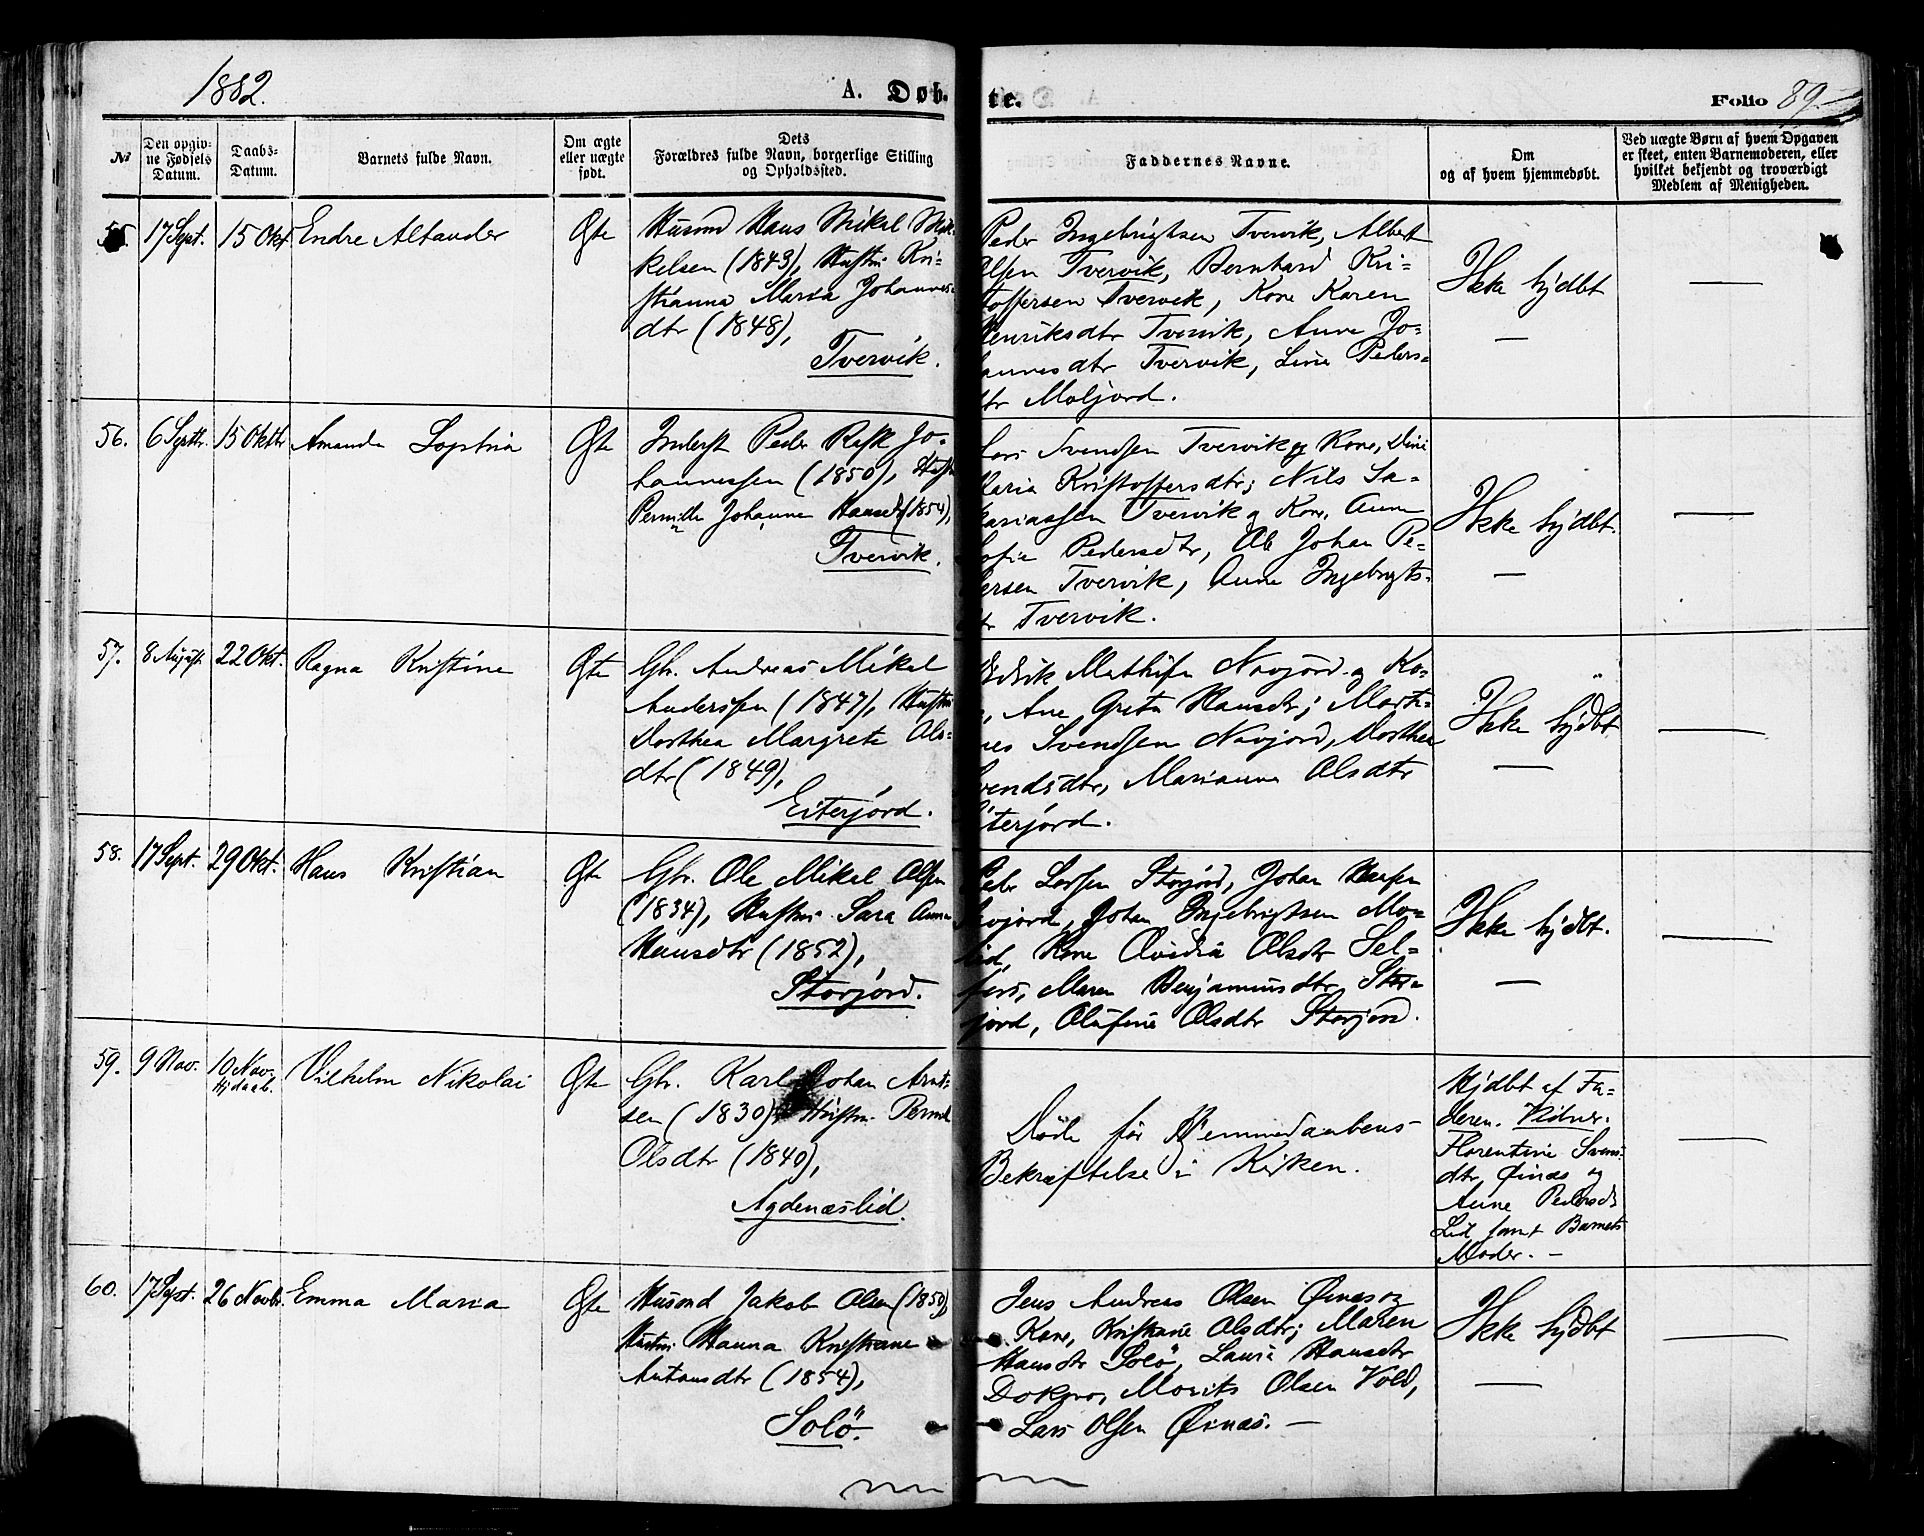 1882.
A. Døb-
te.
Folio 89
No
Den opgiv-
ne Fødsels
Datum.
Daabs-
Datum.
Barnets fulde Navn.
Om ægte
eller uægte
født.
Dets
Forældres fulde Navn, borgerlige Stilling
og Opholdssted.
Faddernes Navne.
Om
og af hvem hjemmedøbt.
Ved uægte Børn af hvem Opgaven
er skeet, enten Barnemoderen, eller
hvilket bekjendt og troværdigt
Medlem af Menigheden.
55. 17 Sept. 15 Okt. Endre Altander Ægte
Husmd Hans Mikal Mik-
kelsen (1843), Hustru Kri-
stianna Maria Johannes-
dtr (1848),
Tvervik.
Peder Ingebrigtsen Tvervik, Albert
Olsen Tvervik, Bernhard Kri-
stoffersen Tvervik, Kone Karen
Henriksdtr Tvervik, Anne Jo-
hannesdtr Tvervik, Line Peders-
dtr Moljord.
Ikke hjdbt
—
56. 6 Septbr. 15 Oktbr Amanda Ægte
Inderst Peder Rask Jo-
hannessen (1850), Hustru
Pernille Johanna Hansdtr (1854),
Tvervik.
Lars Svendsen Tvervik og Kone, Dina
Maria Kristoffersdtr; Nils Sa-
kariassen Tvervik og Kone, Anne
Sofia Pedersdtr, Ole Johan Pe-
dersen Tvervik, Anne Ingebrigts-
dtr Tvervik.
Ikke hjdbt.
—
57. 8 August. 22 Okt. Ragna Kristine Ægte
Gbr. Andreas Mikal
Anderssen (1847), Hustru
Dorthea Margrete Ols-
dtr (1849),
Eiterjord.
Mathisen Navjord og Ko-
ne, Ane Greta Hansdtr; Marti-
nes Svendsen Navjord, Dorthea
Svendsdtr, Marianna Olsdtr
Eiterjord.
Ikke hjdbt
—
58. 17 Sept. 29 Okt. Hans Kristian Ægte
Gbr. Ole Mikal Olsen
(1834), Hustru Sara Anna
Hansdtr (1852),
Storjord.
Peder Larsen Storjord, Johan Hansen
Johan Ingebrigtsen Mo-
lid, Kone Olsdtr Sel-
fors, Maren Benjaminsdtr Stor-
jord, Olufine Olsdtr Storjord.
Ikke hjdbt.
—
59. 9 Nov. 10 Nov. Hjdaab. Vilhelm Nikolai Ægte
Gbr. Karl Johan Arnt-
sen (1830), Hustru Pernille
Olsdtr (1840),
Agdenæslid.
Døde før Hjemmedaabens
Bekræftelse i Kirken.
Hjdbt af Fa-
deren. Vidner.
Florentine Svens-
dtr, Øinæs og
Anne Pedersdtr
Lid samt Barnets
Moder. —
60. 17 Sept. 26 Novbr. Emma Maria Ægte
Husmd Jakob Olsen (1850),
Hustru Hanna Kristiane
Antonsdtr (1854),
Solö.
Jens Andreas Olsen Øinæs og
Kone, Kristiane Olsdtr; Maren
Hansdtr Solö, Hansdtr
Dokmo, Morits Olsen Vold,
Lars Olsen Øinæs. —
Ikke hjdbt
—